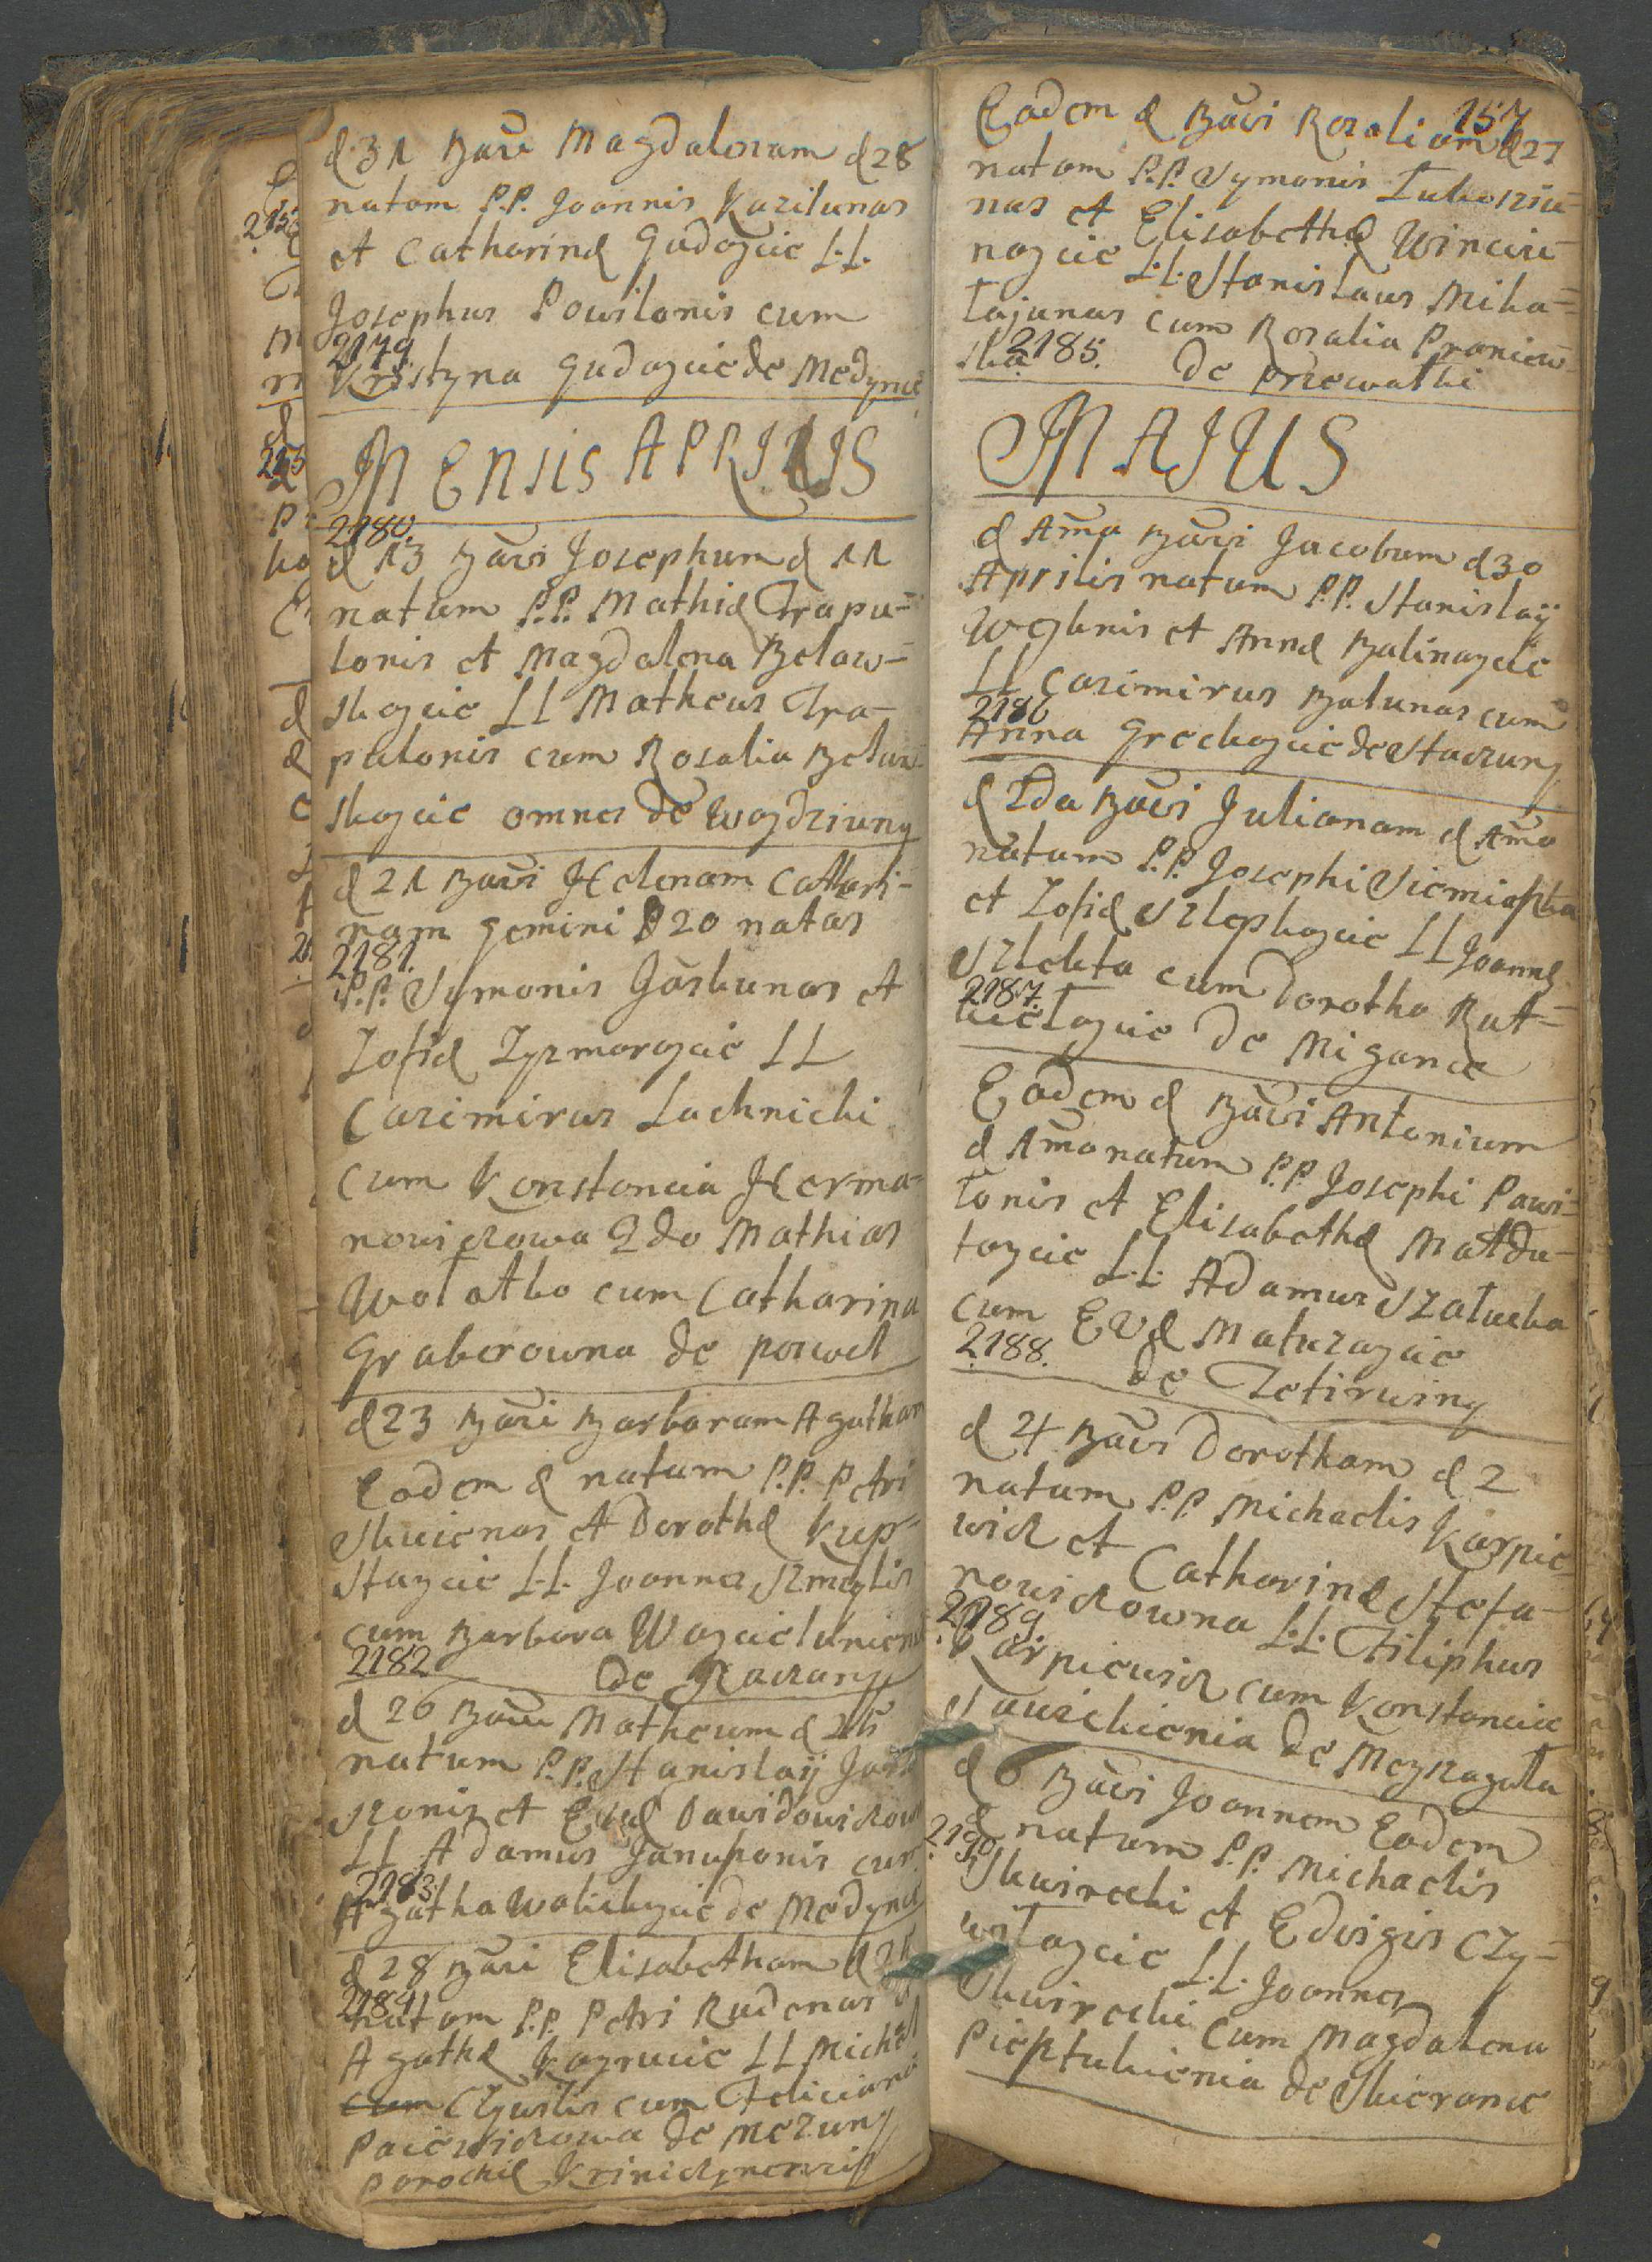 d 31 Bavi Magdalenam d 28
natam P.P. Joannis Kazilunas
et Catharinæ Gudaycie L.L.
Josephus Powilonis cum
2179.
Krystyna Gudaycie de Medyncie
MENSIS APRILIS
2180.
d 13 Bavi Josephum d 11
natum P.P. Mathiæ Trapu-
lonis et Magdalena Belaw-
skaycie LL Matheus Tra-
pulonis cum Rosalia Belaw-
skaycie omnes de Woydziuny
d 21 Bavi Helenam Cathari-
nam gemini d 20 natas
2181.
P.P. Symonis Jaskunas et
Zofiæ Zyzmaraycie LL
Casimirus Lachnicki
cum Konstancia Herma-
nowiczowa 2do Mathias
Wołatko cum Catharina
Graberowna de poswol
d 23 Bavi Barbaram Agatham
Eadem d natam P.P. Petri
Skuienas et Dorothæ Kup-
staycie L.L. Joannes Szmeylis
cum Barbara Woyciclunienia
2182
de
d 26 Bavi Matheum d 25
natum P.P. Stanislaij
et Evæ Dawidowiczow
LL Adamus Januszonis cum
2183
Agatha Walickaycie de Medyncie
d 28 Bavi Elisabetham d 26
2184
natam P.P. Petri Rudenas et
Agathæ LL Michael
cum Czywilis cum Feliciana
Paiewiczowa de Mezuny
parochiæ Krinicznensis
157
Eadem d Bavi Rozaliam d 27
natam P.P. Symonis
nas et Elisabethæ Winciu-
naycie L.L. Stanislaus Mika-
łajunas cum Rozalia Praniew-
2185.
ska de Przewałki
MAJUS
d 1ma Bavi Jacobum d 30
Aprilis natum P.P. Stanislaij
Woglinis et Annæ Balinaycie
LL Casimirus Balunas cum
2186
Anna Greckaycie de Staczuny
d 2da Bavi Julianam d 1ma
natam P.P. Josephi Siemiaszka
et Zofiæ Szlepkaycie LL Joannes
Szlekta cum Dorotha Rut-
2187.
kiełaycie de Migance
Eadem d Bavi Antonium
d 1ma natum P.P. Josephi Pawi-
łonis et Elisabethæ Matdu-
łaycie L.L. Adamus Szałucka
cum Evæ Matuzaycie
2188.
de Zetirwiny
d 4 Bavi Dorotham d 2
natam P.P. Michaelis Karpie-
wicz et Catharinæ Stefa-
nowiczowna L.L. Filiphus
2189
Karpiewicz cum Konstancia
Sawickienia de Meyszagoła
d 6 Bavi Joannem Eadem
2190
d natum P.P. Michaelis
Skwirecki et Edvigis Czy-
wiłaycie L.L. Joannes
Skwirecki cum Magdalena
Piesztukienia de Skierance